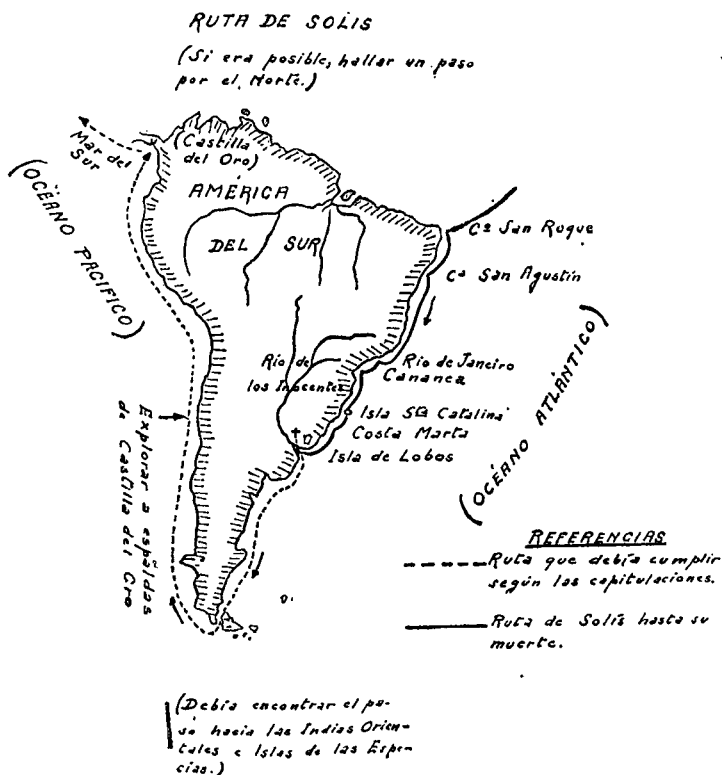 RUTA DE SOLIS
(Si era posible, hallar un paso
por el Norte.)
Mar del
Sur
(Castilla
del Oro)
AMÉRICA
DEL SUR
(OCÉANO PACIFICO)
Cº San Roque
Cº San Agustín
Río de
los Inocentes
Río de Janeiro
Cananea
Isla Sta Catalina
Costa Marta
Isla de Lobos
(OCÉANO ATLÁNTICO)
Explorar a espaldas
de Castilla del Oro
REFERENCIAS
Ruta que debía cumplir
según las capitulaciones.
Ruta de Solís hasta su
muerte.
(Debía encontrar el pa-
so hacia las Indias Orien-
tales e Islas de las Espe-
cias.)